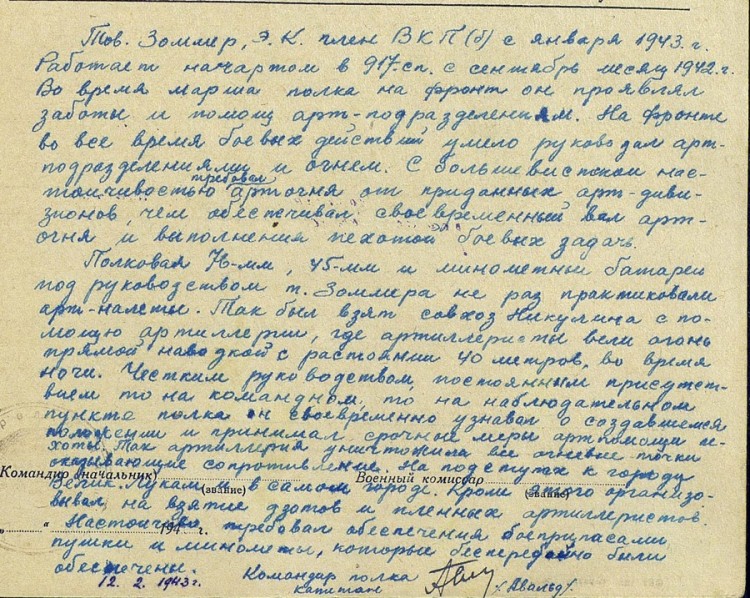 Тов. Зоммер, Э. К. член ВКП(б) с января 1943. г.
Работает начартом в 917. сп. с сентябрь месяц 1942. г.
Во время марша полка на фронт он проявлял
заботы и помощ арт-подразделениям. На фронте
во все время боевых действий умело руководил арт-
подразделениями и огнем. С большевистской нас-
тойчивостью требовал артогня от приданных арт-диви-
зионов, чем обеспечивал своевременный вал арт-
огня и выполнения пехотой боевых задачь.
Полковая 76-мм, 45-мм и минометные батареи
под руководством т. Зоммера не раз практиковали
арт-налеты. Так был взят совхоз Никулина с по-
мощью артиллерии, где артиллеристы вели огонь
прямой наводкой с растоянии 40 метров, во время
ночи. Честким руководством, постоянным присутст-
вием то на командном, то на наблюдательном
пункте полка он своевременно узнавал о создавшемся
положении и принимал срочные меры артпомощи пе-
хоты. Так артиллерия уничтожила все огневые точки
оказывающие сопротивление. На подступах к городу
Командир (начальник) Военный комиссар
Великолукам и в самом городе. Кроме этого организо-
(звание) (звание)
вывал на взятие дзотов и пленных артиллеристов
„ “ 194 г.
Настойчиво требовал обеспечения боеприпасами
пушки и минометы, которые бесперебойно были
обеспечены.
12. 2. 1943 г. Командир полка
Капитан (Авальд).